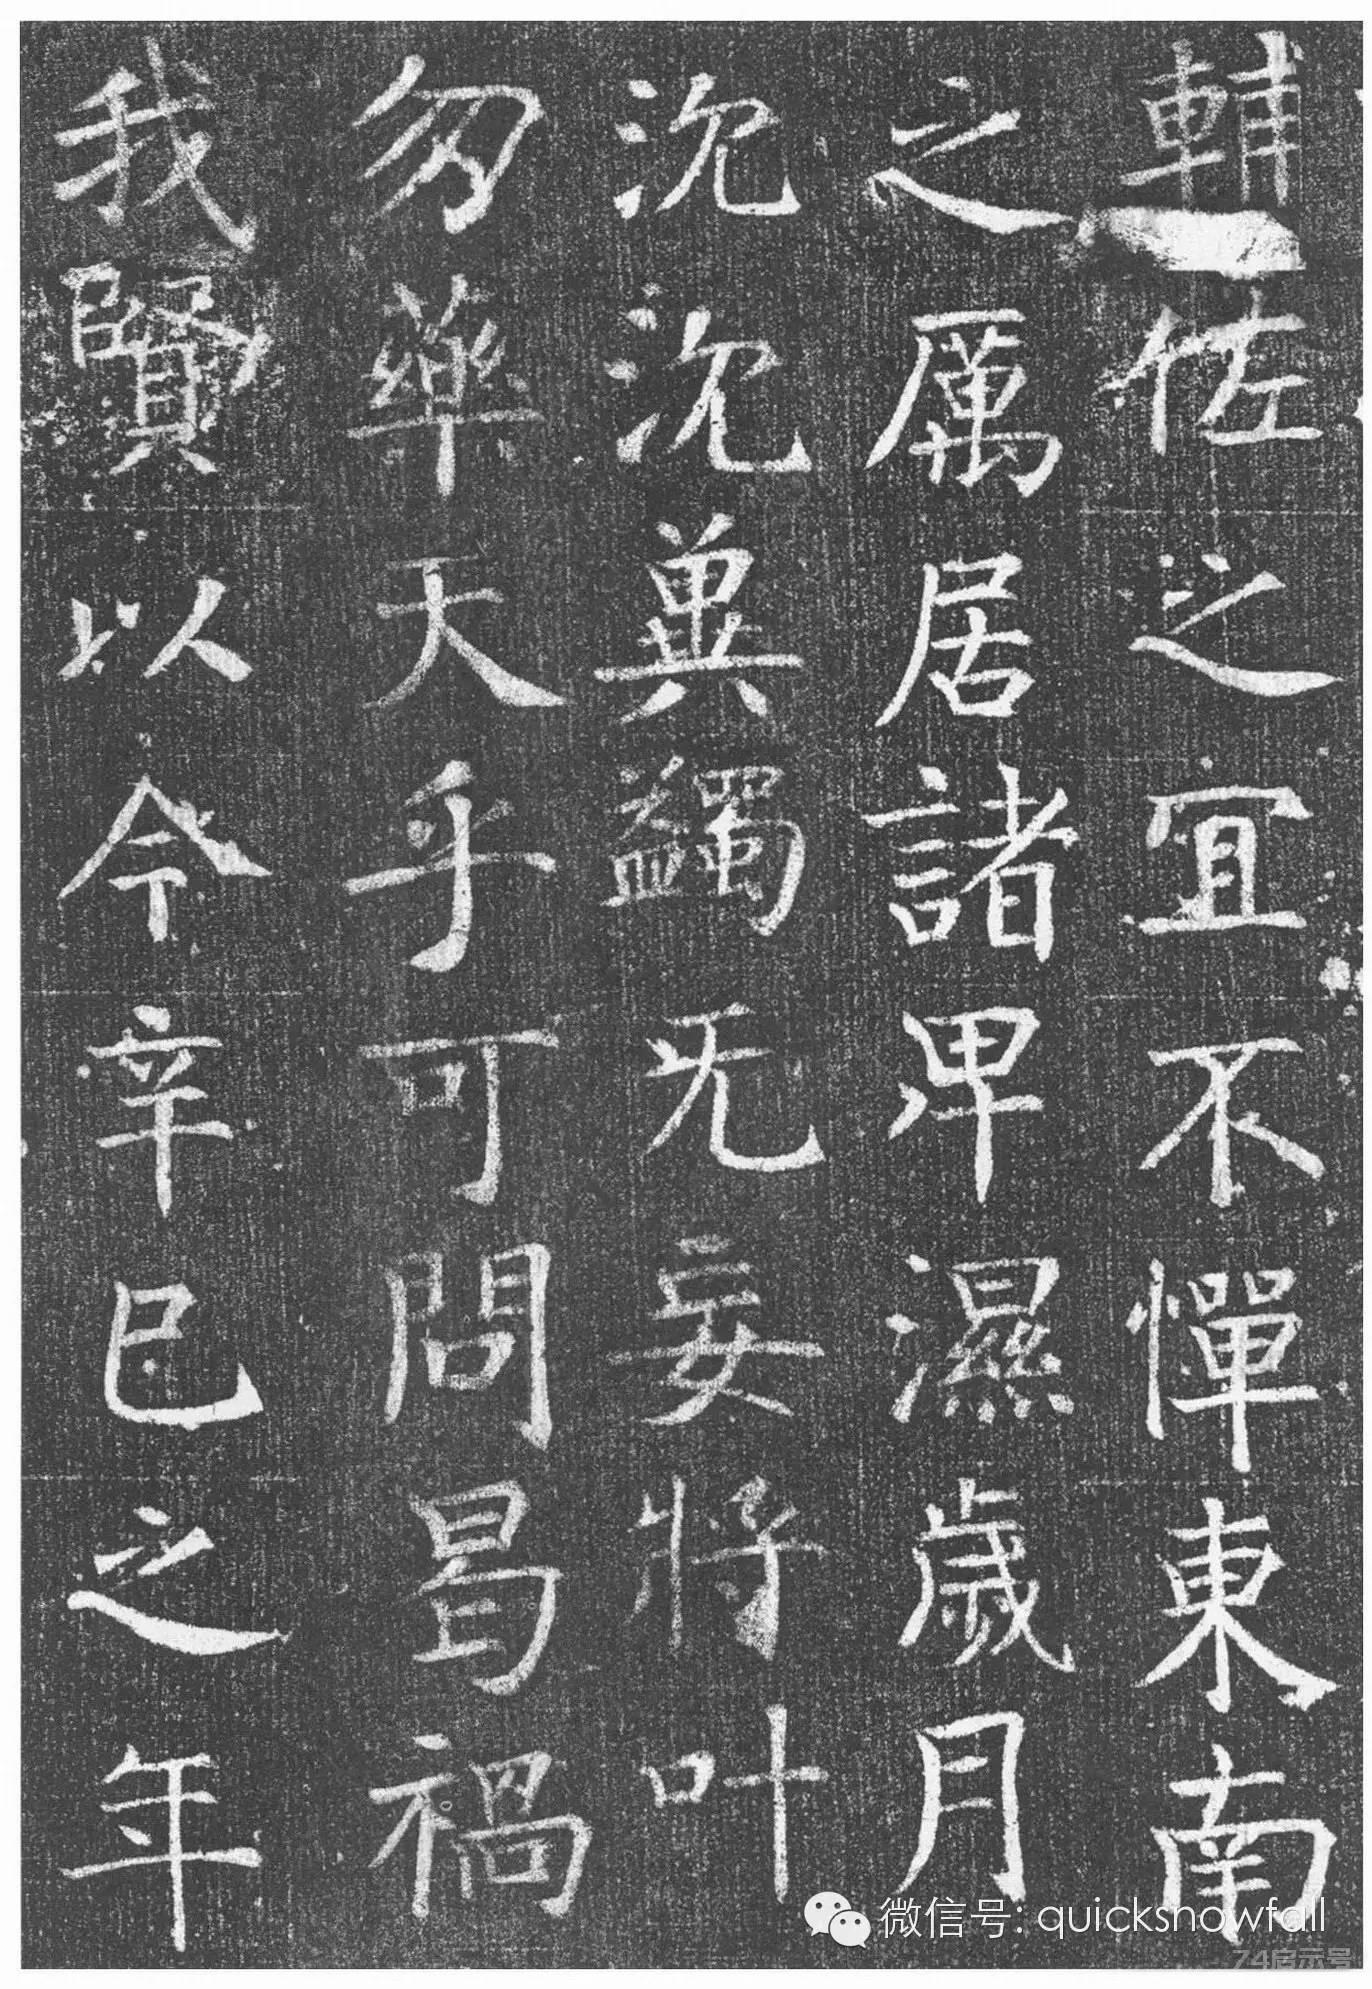 輔佐之宜不憚東南
之厲居諸卑濕歲月
沉沉冀蠲无妄將叶
勿藥天乎可問曷禍
我賢以今辛巳之年
微信号: quicksnowfall
74启示号